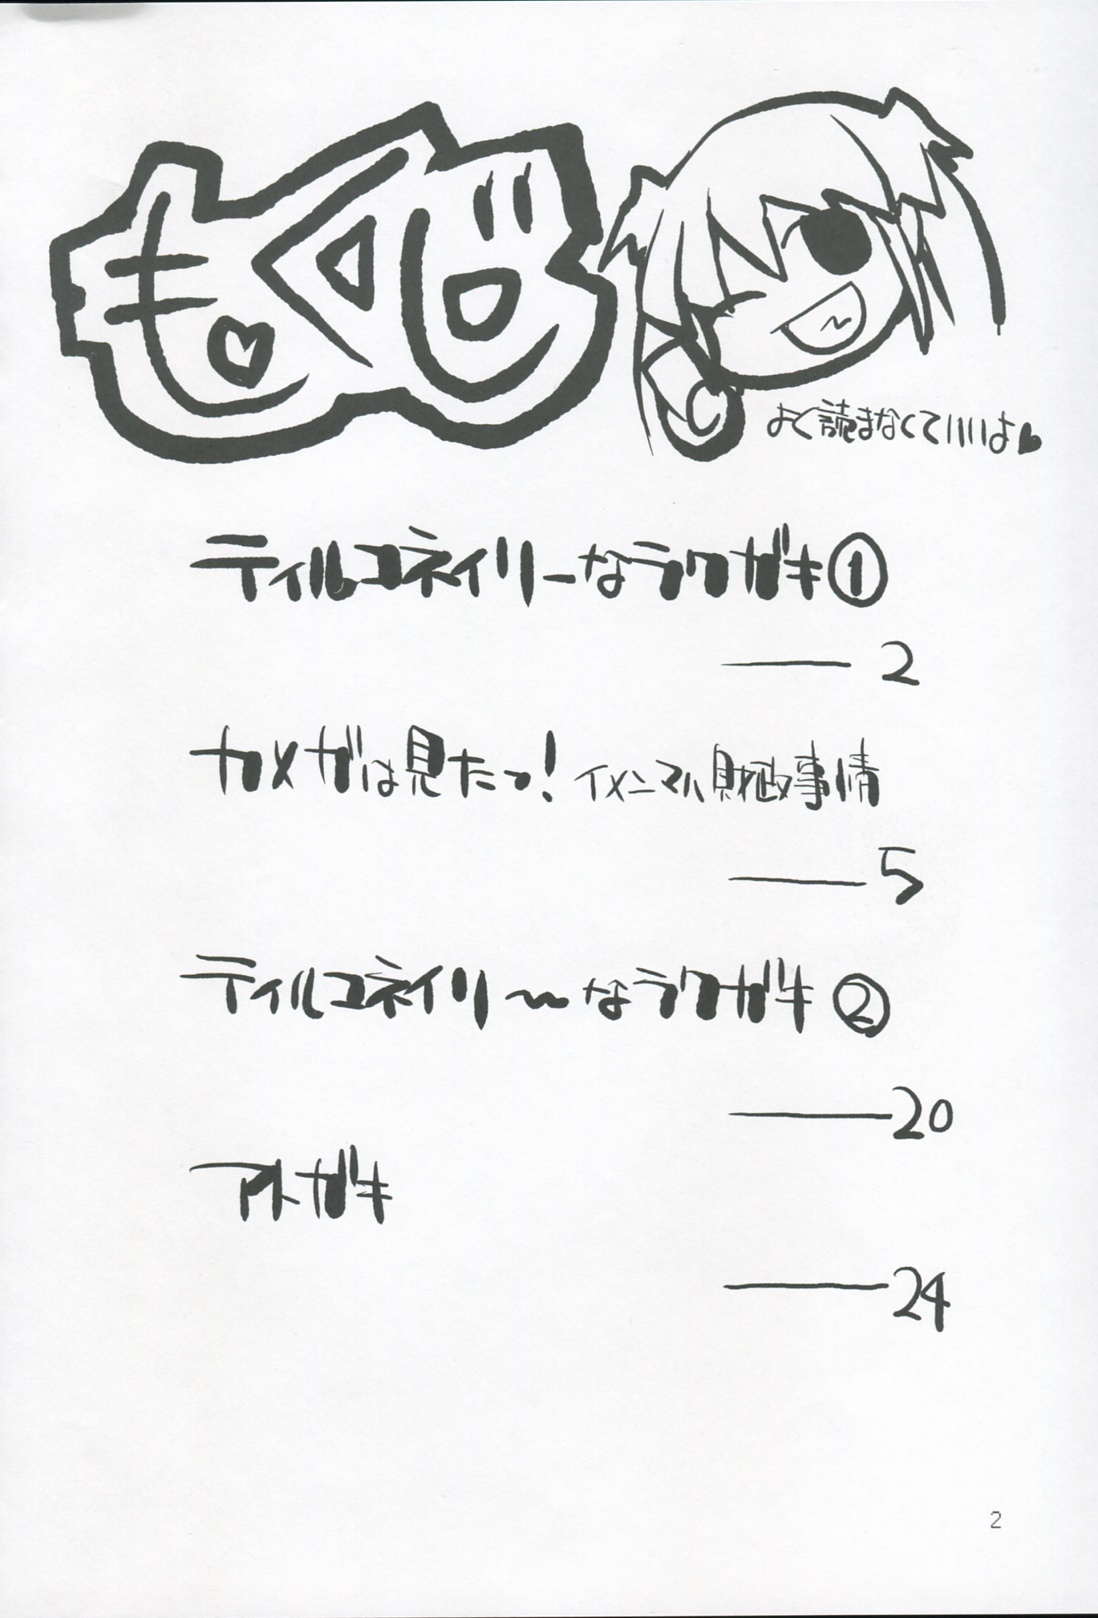 もくじ
よく読まなくていいよ♥
ティルコネイリーなラクガキ①
— 2
カメガは見たっ! イメンマハ財政事情
— 5
ティルコネイリ〜なラクガキ②
— 20
アトガキ
— 24
2